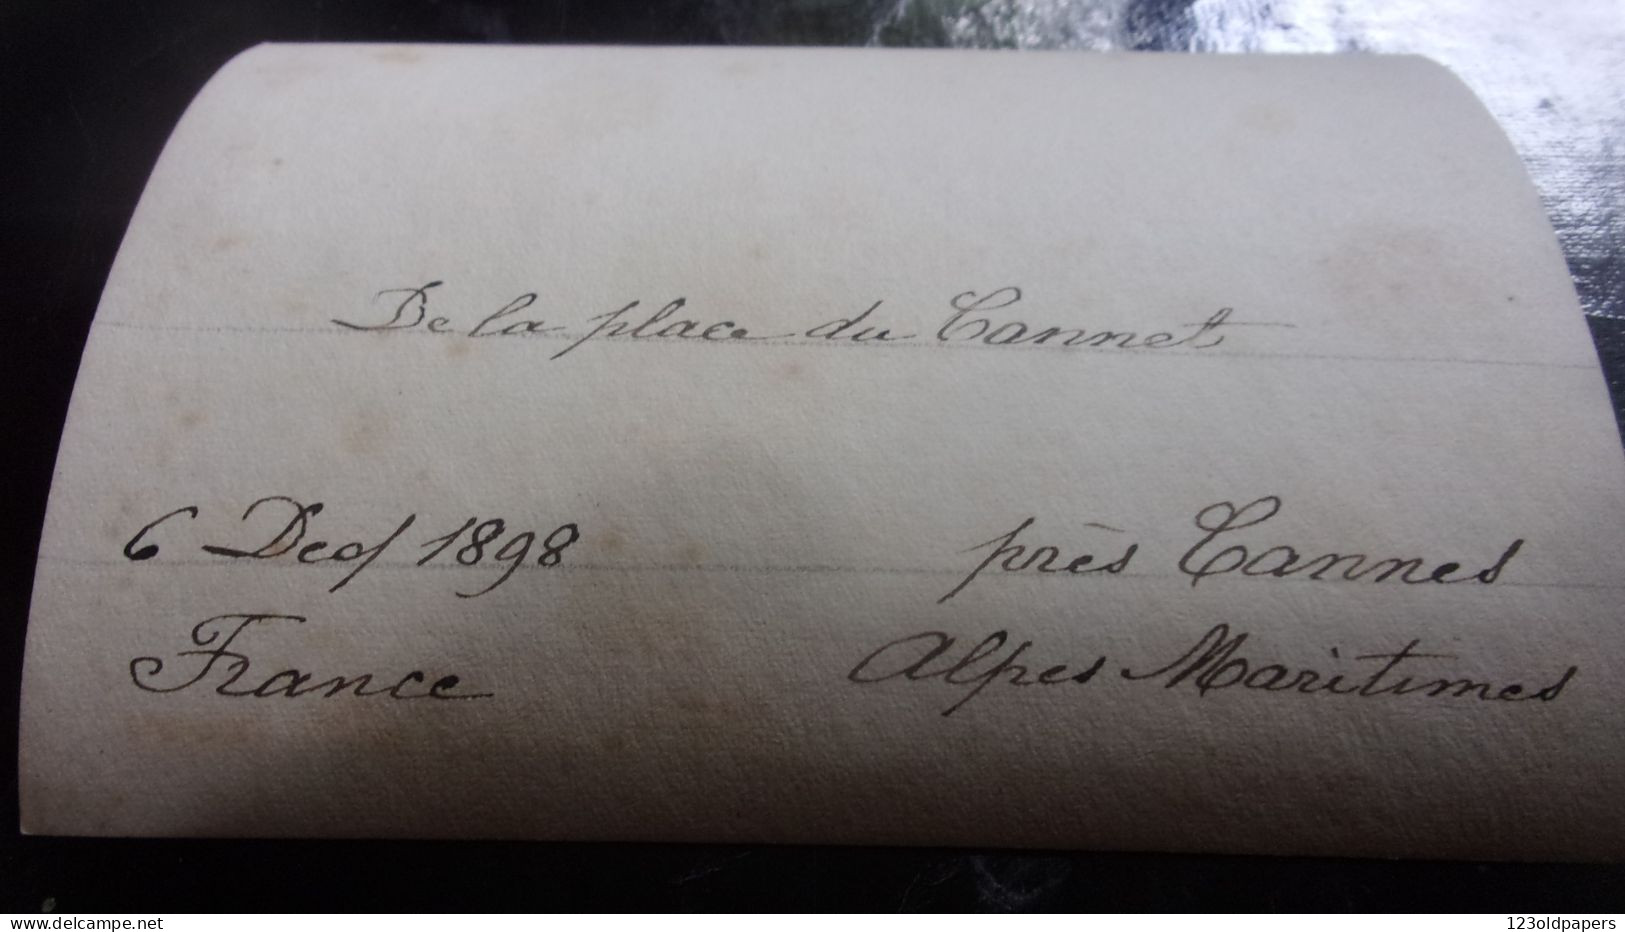 De la place du Cannet
6 Dec/ 1898 près Cannes
France Alpes Maritimes
delcampe.net 123oldpapers